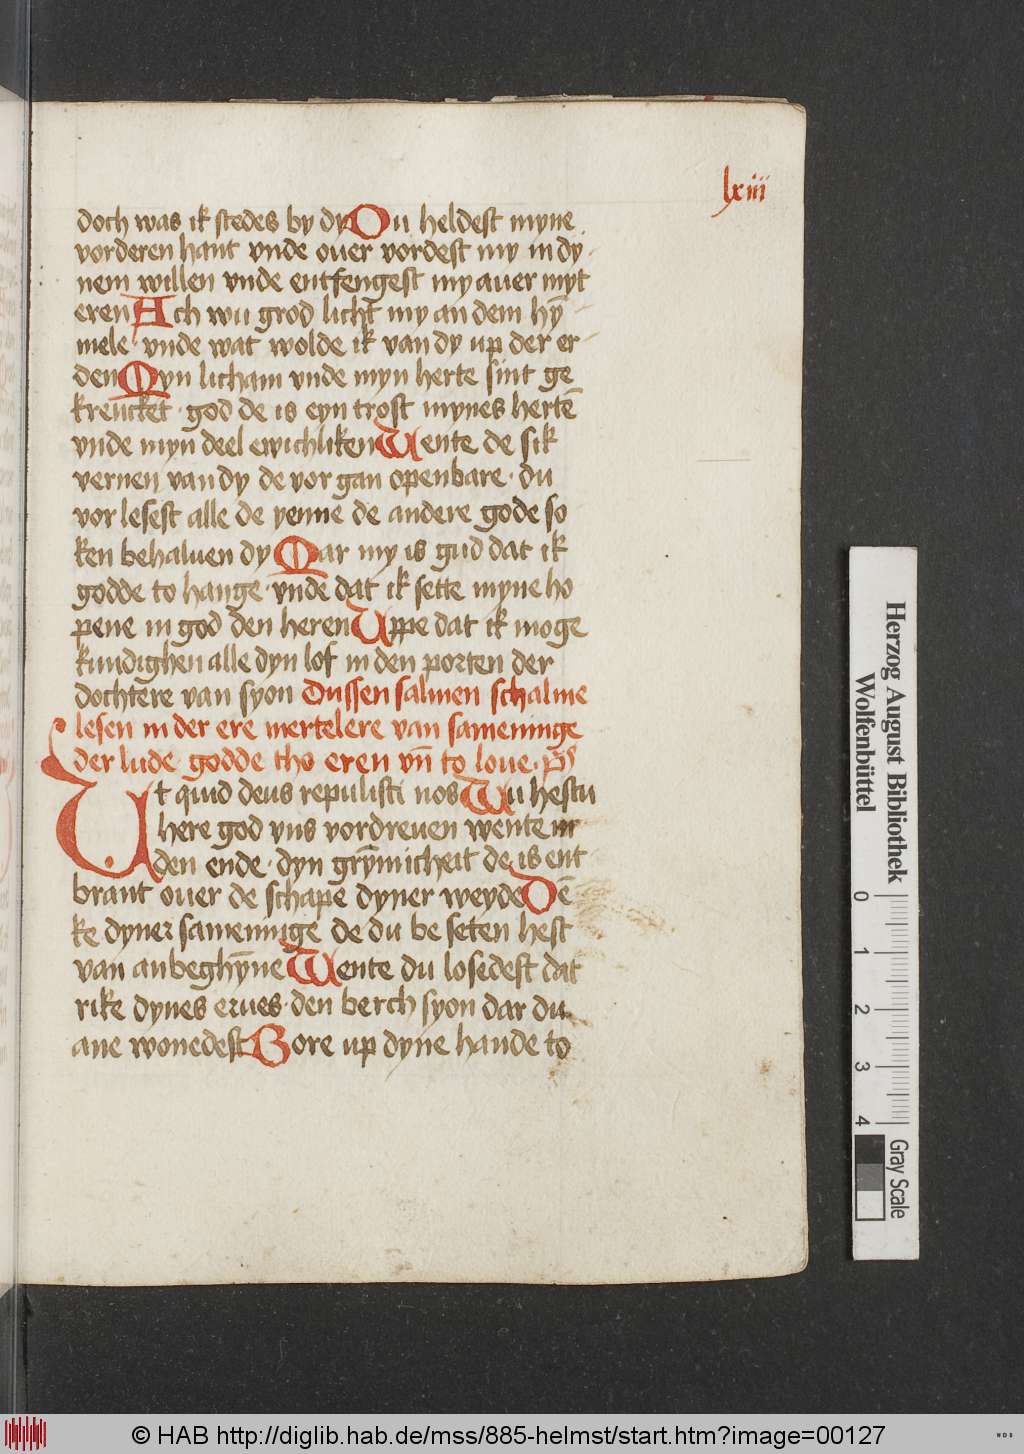 lxiii
doch was ik stedes by dy Du heldest myne
vorderen hant vnde ouer vordest my in dy
nem willen vnde entfengest my auer myt
eren Ach wu grod licht my an dem hȳ
mele vnde wat wolde ik van dy up der er
den Myn licham vnde myn herte sint ge
krencket · god de is eyn trost mynes hertē
vnde myn deel ewichliken Wente de sik
vernen van dy de vor gan openbare · du
vor lesest alle de yenne de andere gode so
ken behaluen dy Mar my is gud dat ik
godde to hange · vnde dat ik sette myne ho
pene in god den heren Uppe dat ik moge
kundighen alle dyn lof in den porten der
dochtere van syon Dussen salmen schalme
lesen in der ere mertelere van sameninge
der lude godde tho eren vn̄ to loue · ps
Ut quid deus repulisti nos Wu hestu
here god vns vordreuen wente in
den ende · dyn grȳmicheit de is ent
brant ouer de schape dyner weyde Dē
ke dyner samenninge de du be seten hest
van anbeghȳne Wente du losedest dat
rike dynes erues · den berch syon dar du
ane wonedest Bore up dyne hande to
Herzog August Bibliothek
Wolfenbüttel
0 1 2 3 4
Gray Scale
© HAB http://diglib.hab.de/mss/885-helmst/start.htm?image=00127